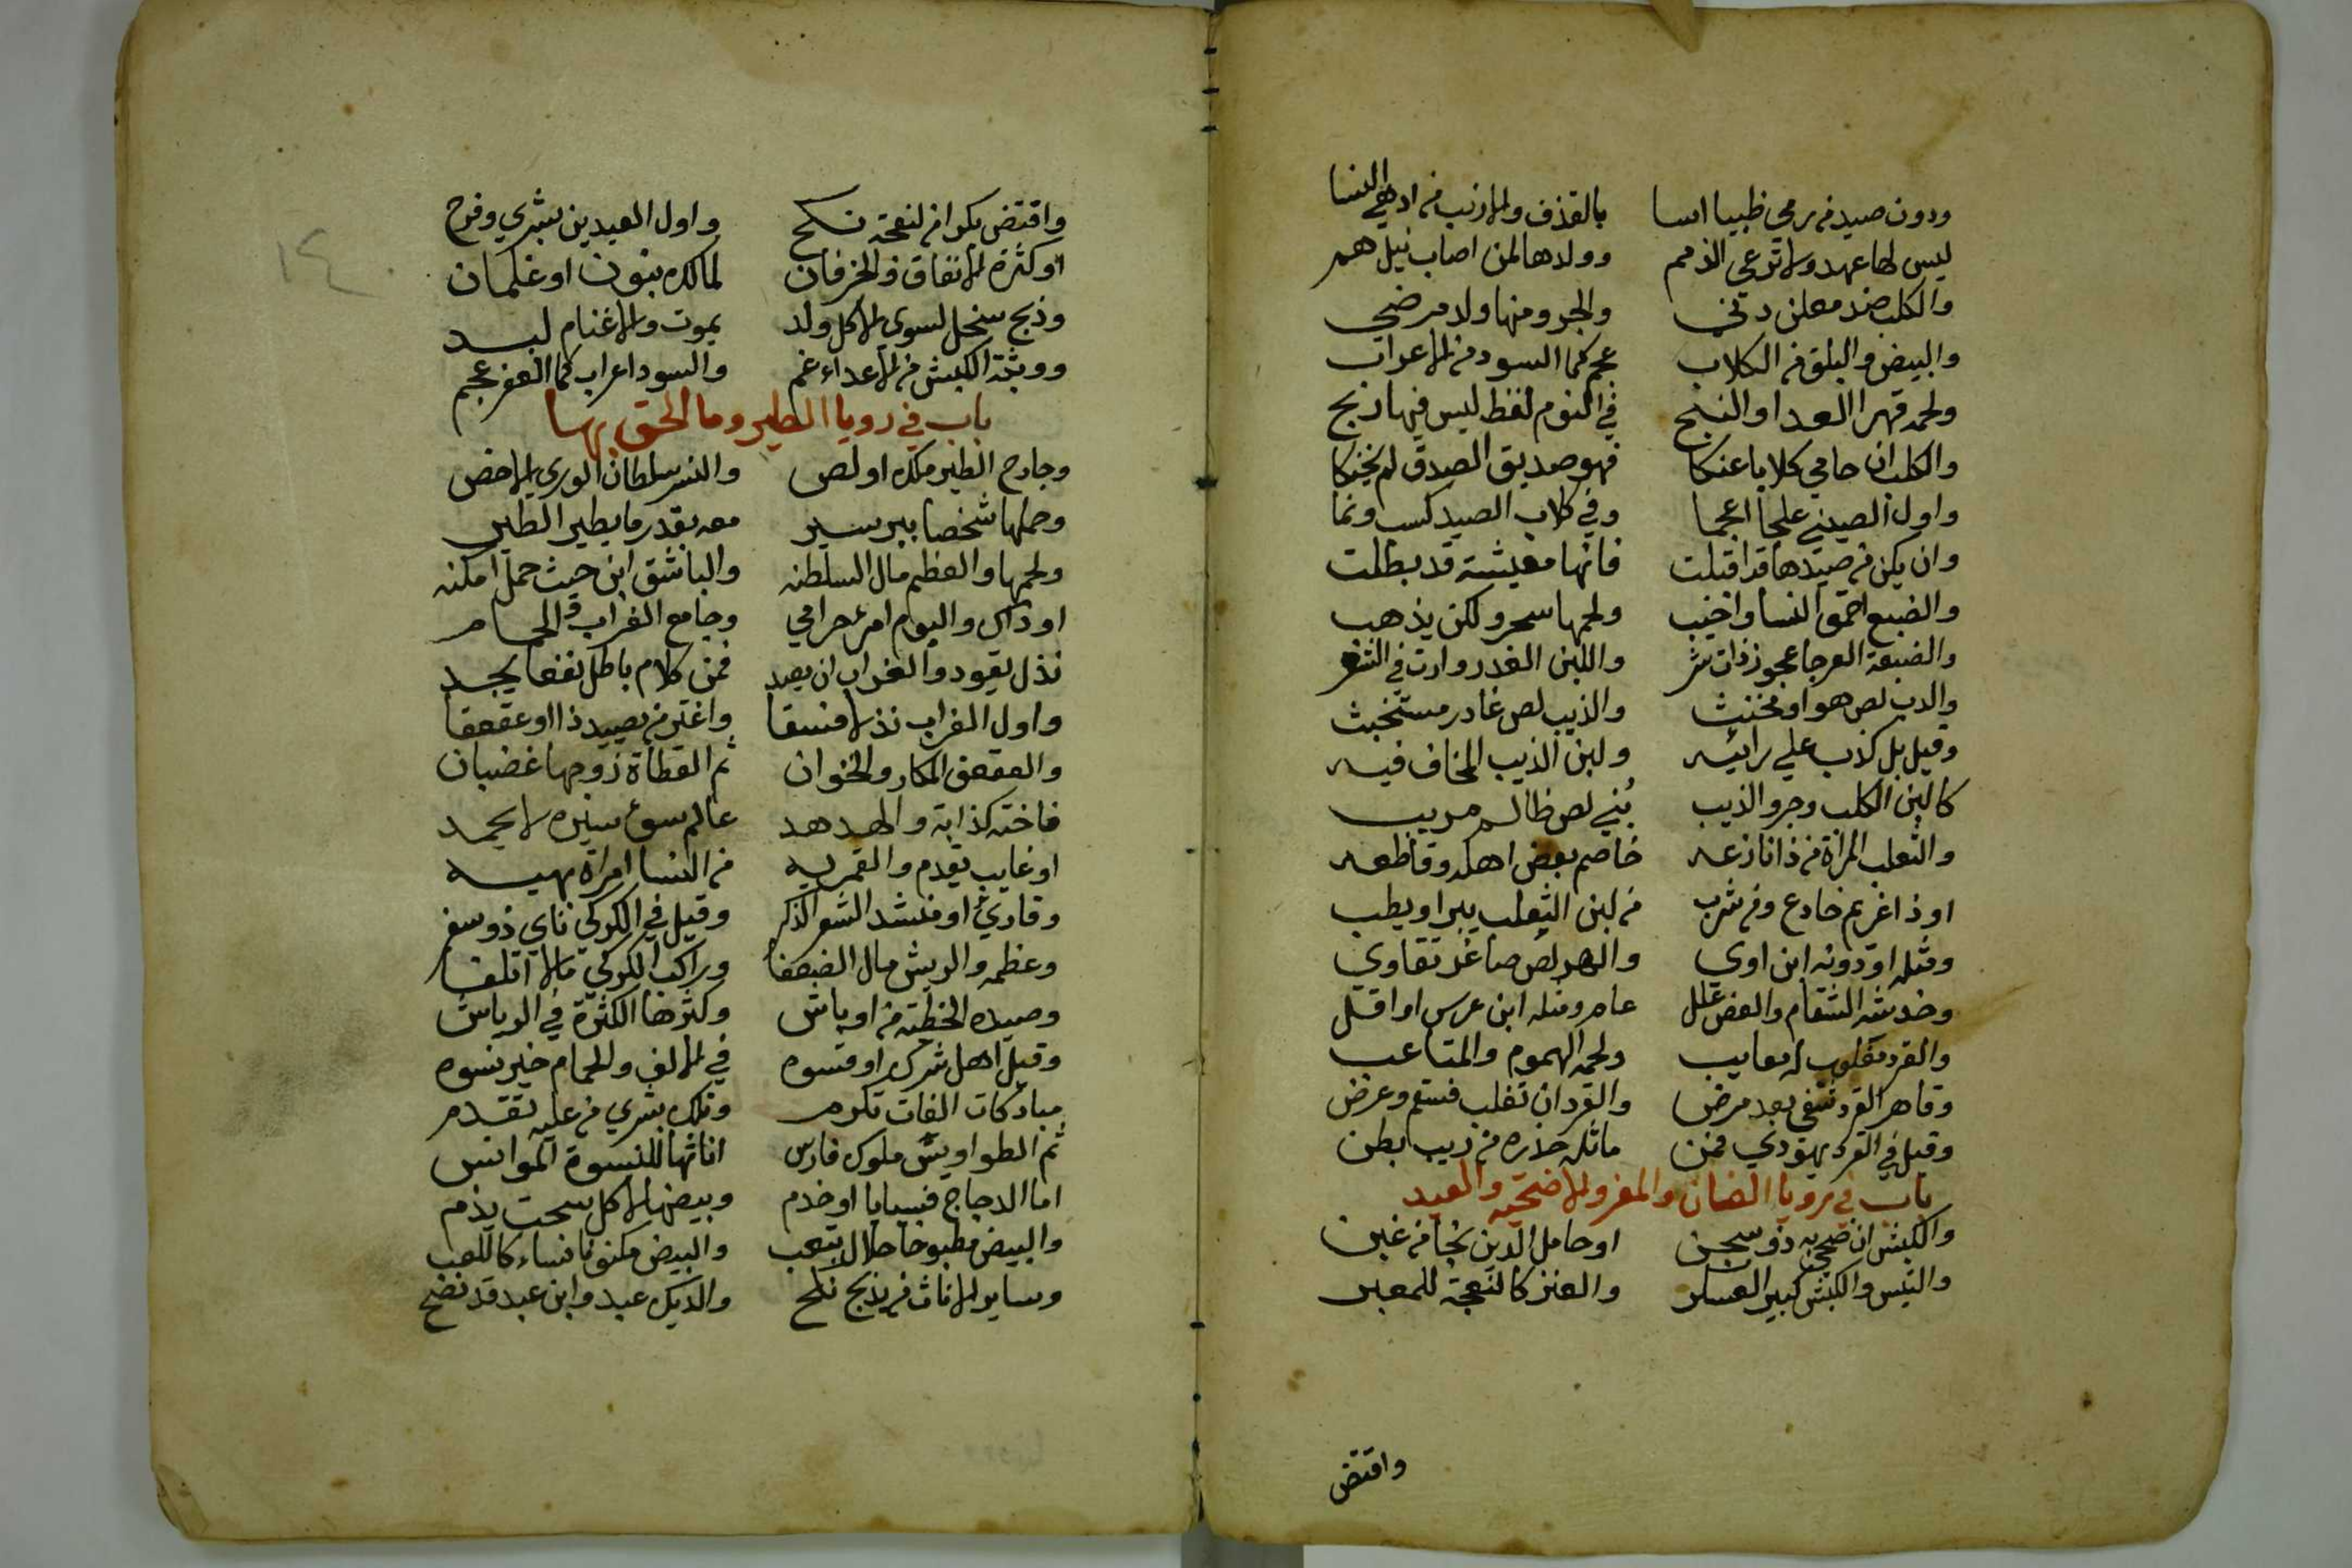 ودون صيد من رمى ظبيا اسا بالقذف والارنب من ادهى النسا
ليس لها عهد ولا ترعى الذمم وولدها لمن اصاب نيل هم
والكلب ضد معلن دني والجرو منها ولد مرضي
والبيض والبلق من الكلاب عجم كما السود من الاعراب
ولحمه قهر العدا والنبح في النوم لفظ ليس فيها ربح
والكلب ان حامي كلابا عنكا فهو صديق الصدق لم يخنكا
واول الصيني علجا اعجما وفي كلاب الصيد كسب ونما
وان يكن من صيدها قد اقبلت فانها معيشة قد بطلت
والضبع احمق النسا واخيب ولحمها سحر ولكن يذهب
والضبعة العرجا عجوز ذات شر واللبن الغدر وارت في
والدب لص هو او مخنث والذيب لص غادر مستخبث
وقيل بل كذب على رائيه ولبن الذيب المخاف فيه
كالبن الكلب وجرو الذيب بني لص ظالم مريب
والثعلب المراة من ذا نازعه خاصم بعض اهله وقاطعه
او ذا غريم خادع ومن شرب من لبن الثعلب يبرا ويطب
ومثله او دونه ابن اوى والهر لص صاغر تقاوي
وخدشه السقام والعض علل عام ومثله ابن عرس او اقل
والقرد مغلوب له معايب ولحمه الهموم والمتاعب
وقاهر القرد شفي بعد مرض والقرد ان تغلب فسقم وعرض
وقيل في القرد يهودي فمن ماثله حذره من ريب بطن
باب في رويا الضان والمعز والاضحية والعيد
والكبش ان ضحى به ذو سجن او حامل الدين نجا من غبن
والتيس والكبش كبير العسكر والعنز كالنعجة للمعبر
واقتض
واقتض بكرا من لنعجة نكح واول العيدين بشرى وفرح
او كثرة الانفاق والخرفان لمالك بنون او غلمان
وذبح سخل لسوى الاكل ولد يموت والاغنام لبد
ووثبة الكبش من الاعداء غم والسود اعراب كما العفر عجم
باب في رويا الطير وما الحق بها
وجارح الطير ملك او لص والنسر سلطان الورى الاخص
وحملها شخصا ببر سير معه بقدر ما يطير الطير
ولحمها والعظم مال السلطنه والباشق ابن حيث حمل امكنه
او ذاك والبوم امرء حرامي وجامع الغراب والحمام
نذل يقود والغراب ان يصد فمن كلام باطل نفعا يجد
واول الغراب نذلا فسقا واغتر من يصيد ذا او عقعقا
والعقعق المكار والخوان ثم القطاة زوجها غضبان
فاخته كذابة والهدهد عالم سوء سيره لا يحمد
او غايب يقدم والقمريه من النسا امراة بهيه
وقارئ او منشد الشعر الذكر وقيل في الكركي ناي ذو سفر
وعظمه والريش مال الضعفا وراكب الكركي مالا اتلفا
وصيده الخطية من اوباش وكثرها الكثرة في الرياش
وقيل اهل شرك او قسوه في الالف والحمام خير نسوه
مباركات الفات تكرم وتلك بشرى من عليه تقدم
ثم الطواويس ملوك فارس اناثها للنسوة الموانس
اما الدجاج فسبايا او خدم وبيضها لاكل سحت يذم
والبيض مطبوخا حلال بتعب والبيض مكنونا نساء كاللعب
وساير الاناث من يذبح نكح والديك عبد وابن عبد قد نضح
١٤